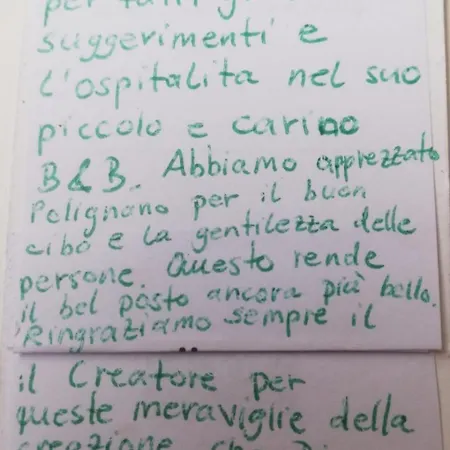 per tutti g
suggerimenti e
l'ospitalita nel suo
piccolo e carino
B&B. Abbiamo apprezzato
Polignano per il buon
cibo e la gentilezza delle
persone. Questo rende
il bel posto ancora più bello.
Ringraziamo sempre il
il Creatore per
queste meraviglie della
creazione